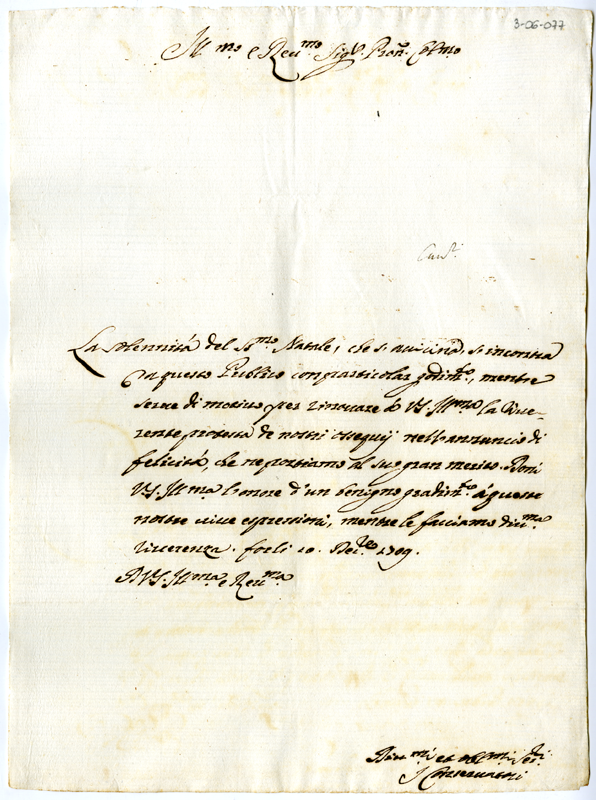 3-06-077
Ill.mo e Reu.mo Sig.r Pron. Col.mo
La solennità del SS.mo Natale, che s'auuicina, s'incontra
da questo Publico con particolar godim.to, mentre
serue di motiuo per rinouare à VS. Ill.ma la riue-
rente protesta de nostri ossequij nell'annuncio di
felicità, che ne portiamo al suo gran merito. Doni
VS. Ill.ma l'honore d'un benigno gradim.to à queste
nostre uiue espressioni, mentre le facciamo diu.ma
riuerenza. Forlì 20. Dec.re 1709.
D VS. Ill.ma e Reu.ma
Diu.mi et obl.mi Ser.ri
I Conseruatori